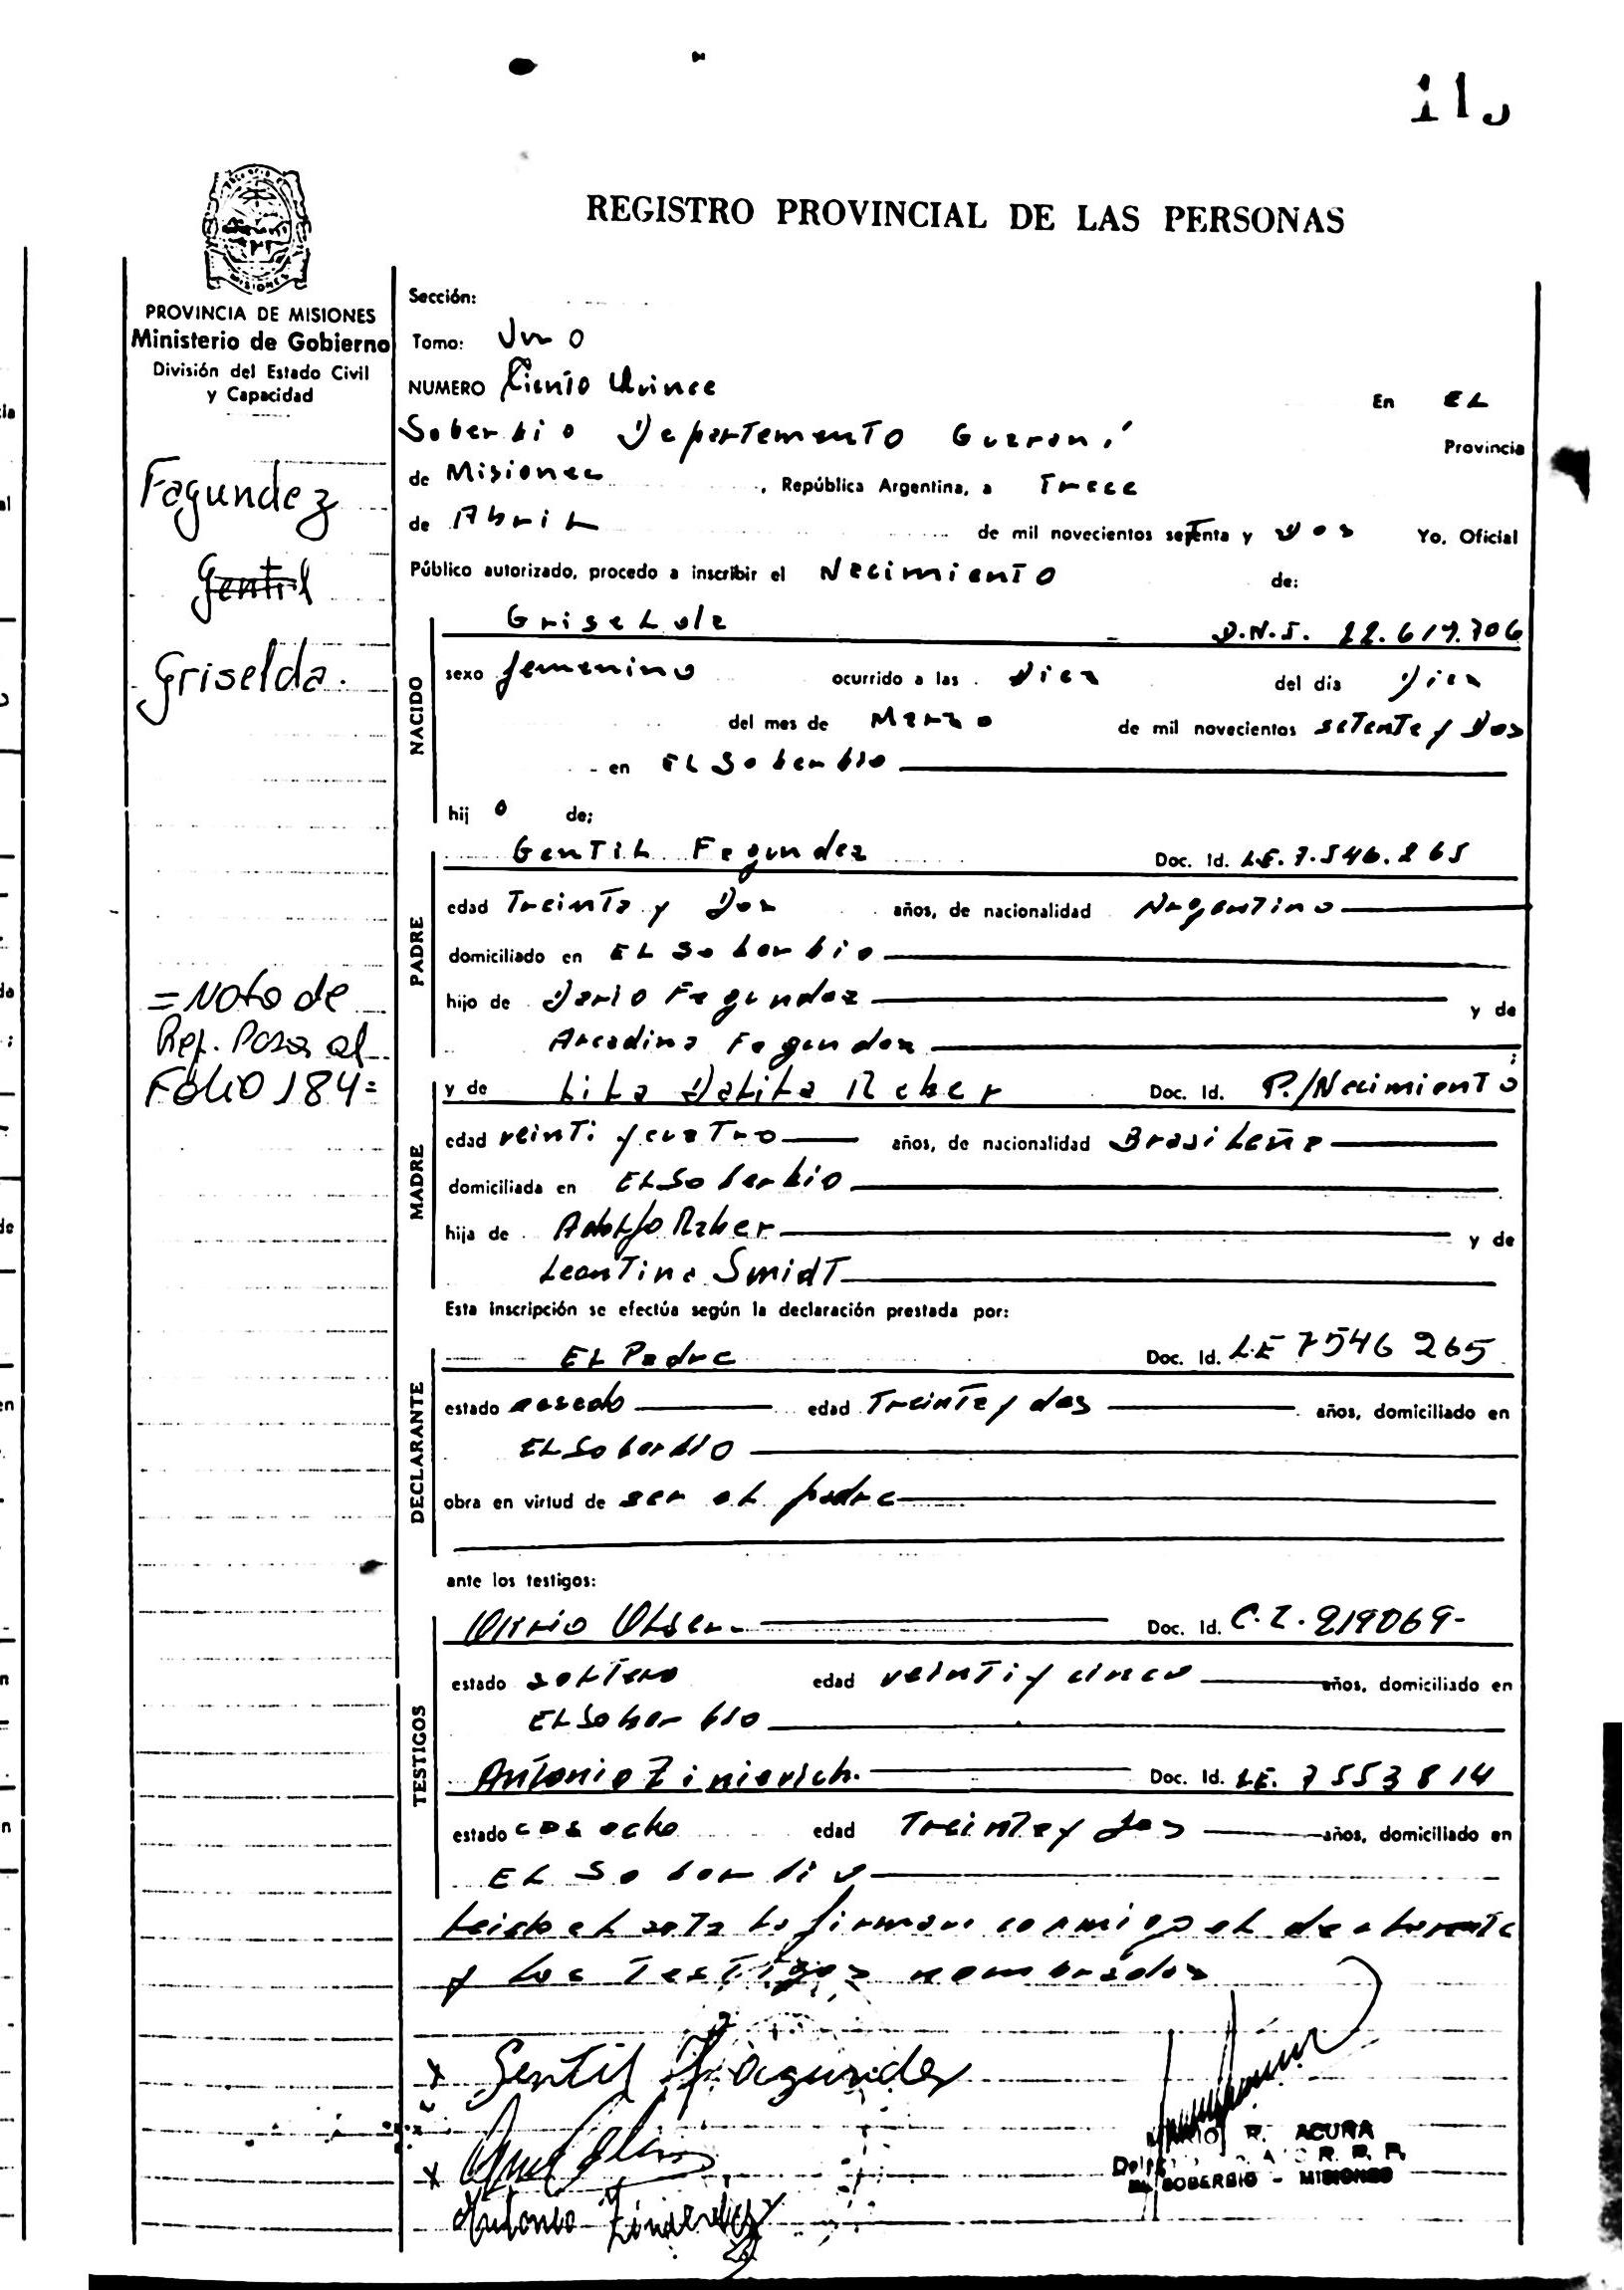 REGISTRO PROVINCIAL DE LAS PERSONAS
MISIONES
PROVINCIA DE MISIONES
Ministerio de Gobierno
División del Estado Civil
y Capacidad
Fagundez
Gentil
Griselda.
= Nota de
Ref. Pasa al
Folio 184=
Sección:
Tomo: Uno
NUMERO Ciento Quince
En EL
Soberbio Departamento Guarani
Provincia
de Misiones, República Argentina, a Trece
de Abril de mil novecientos setenta y Dos Yo, Oficial
Público autorizado, procedo a inscribir el Nacimiento de:
NACIDO
Griselda D.N.I. 22.619.706
sexo femenino ocurrido a las Diez del día Diez
del mes de Marzo de mil novecientos setenta y Dos
en EL Soberbio
hij o de:
PADRE
Gentil Fagundez Doc. Id. LE. 7.546.265
edad Treinta y Dos años, de nacionalidad Argentino
domiciliado en EL Soberbio
hijo de Dario Fagundez y de
Arcadina Fagundez
MADRE
y de Lila Dalila Raber Doc. Id. P./Nacimiento
edad veinti y cuatro años, de nacionalidad Brasileña
domiciliada en EL Soberbio
hija de Adolfo Raber y de
Leontina Smidt
Esta inscripción se efectúa según la declaración prestada por:
DECLARANTE
EL Padre Doc. Id. LE 7546 265
estado casado edad Treinta y dos años, domiciliado en
EL Soberbio
obra en virtud de ser el padre
ante los testigos:
TESTIGOS
Olsen Doc. Id. C.I. 219069-
estado soltero edad veinti y cinco años, domiciliado en
EL Soberbio
Antonio Zinierich. Doc. Id. LE. 7553814
estado edad Treinta y Dos años, domiciliado en
EL Soberbio
Leido el acta la firman conmigo el declarante
y los Testigos nombrados
x Gentil Fagundez
x
Antonio
R. ACUÑA
EL SOBERBIO - MISIONES